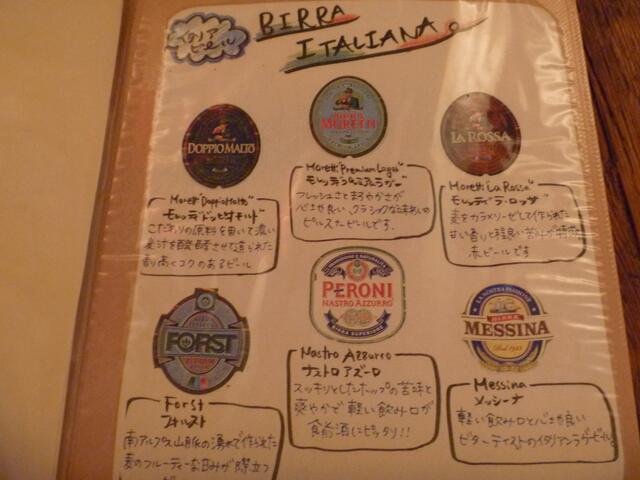 イタリア
ビール
BIRRA
ITALIANA。
DOPPIO MALTO
BIRRA
MORETTI
LA ROSSA
Moretti "Doppio Malto"
モレッティ ドッピオ モルト
こだわりの原料を用いて濃い
麦汁を醗酵させ造られた
香り高くコクのあるビール
Moretti "Premium Lager"
モレッティ プレミアムラガー
フレッシュさとまろやかさが
心地良い、クラシックな味わいの
ピルスナービールです。
Moretti "La Rossa"
モレッティ ラ・ロッサ
麦をカラメリーゼして作られた
甘い香りと程良い苦みが特徴
赤ビールです
FORST
PERONI
NASTRO AZZURRO
BIRRA SUPERIORE
BIRRA
MESSINA
Forst
フォルスト
南アルプス山脈の湧水で作られた
麦のフルーティーな甘みが際立つ
Nastro Azzurro
ナストロ アズーロ
スッキリとしたホップの苦味と
爽やかで軽い飲み口が
食前酒にピッタリ!!
Messina
メッシーナ
軽い飲み口と心地良い
ビターテイストのイタリアンラガービール。